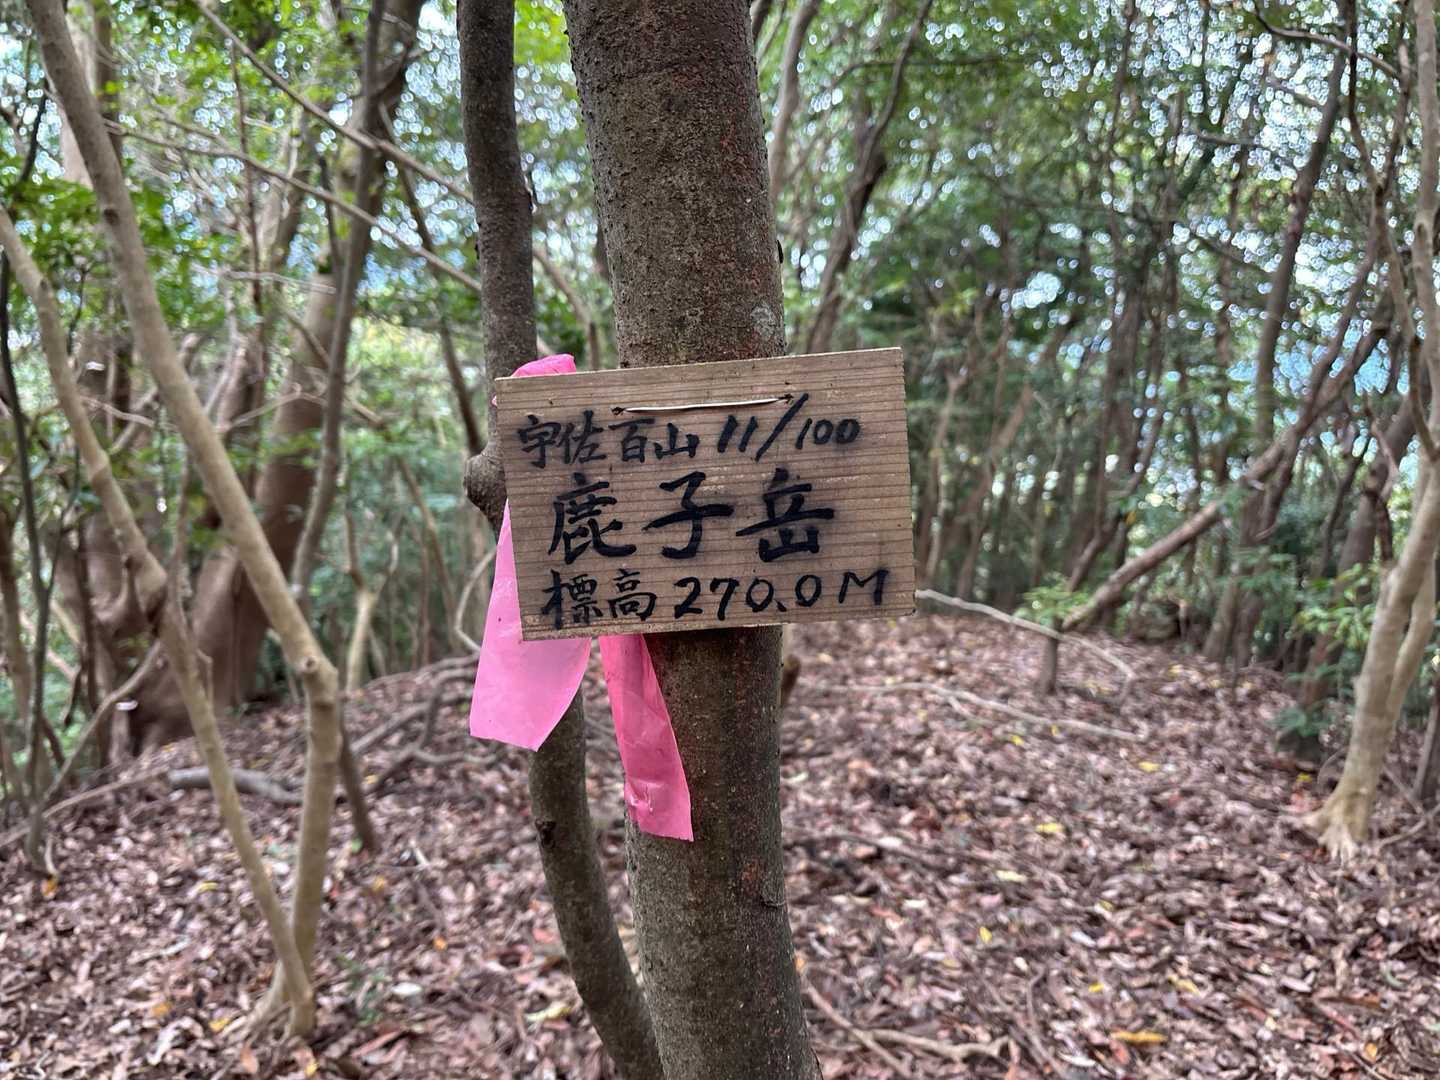 宇佐百山 11/100
鹿子岳
標高 270.0M